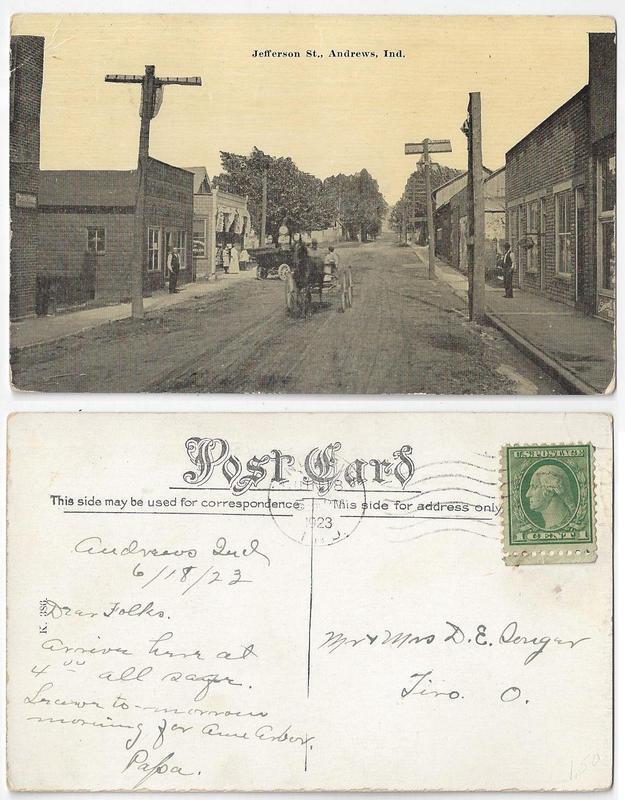 Jefferson St., Andrews, Ind.
Post Card
This side may be used for correspondence
This side for address only
U.S. POSTAGE
1 CENT 1
1923
IND.
Andrews Ind
6/18/23
K. 386
Dear Folks.
Arrive here at
4 00 all safe.
Leave to-morrow
morning for Ann Arbor.
Papa.
Mr & Mrs D. E. Songer
Tiro. O.
1.50